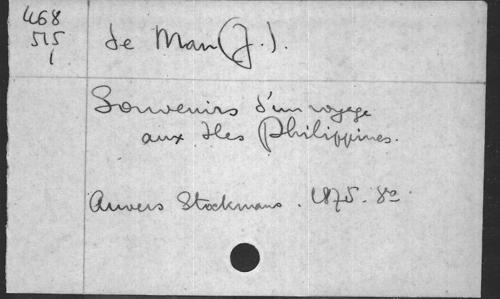 468
515
1
de Man (J.).
Souvenirs d'un voyage
aux Iles Philippines.
Anvers Stockmans. 1875. 8º